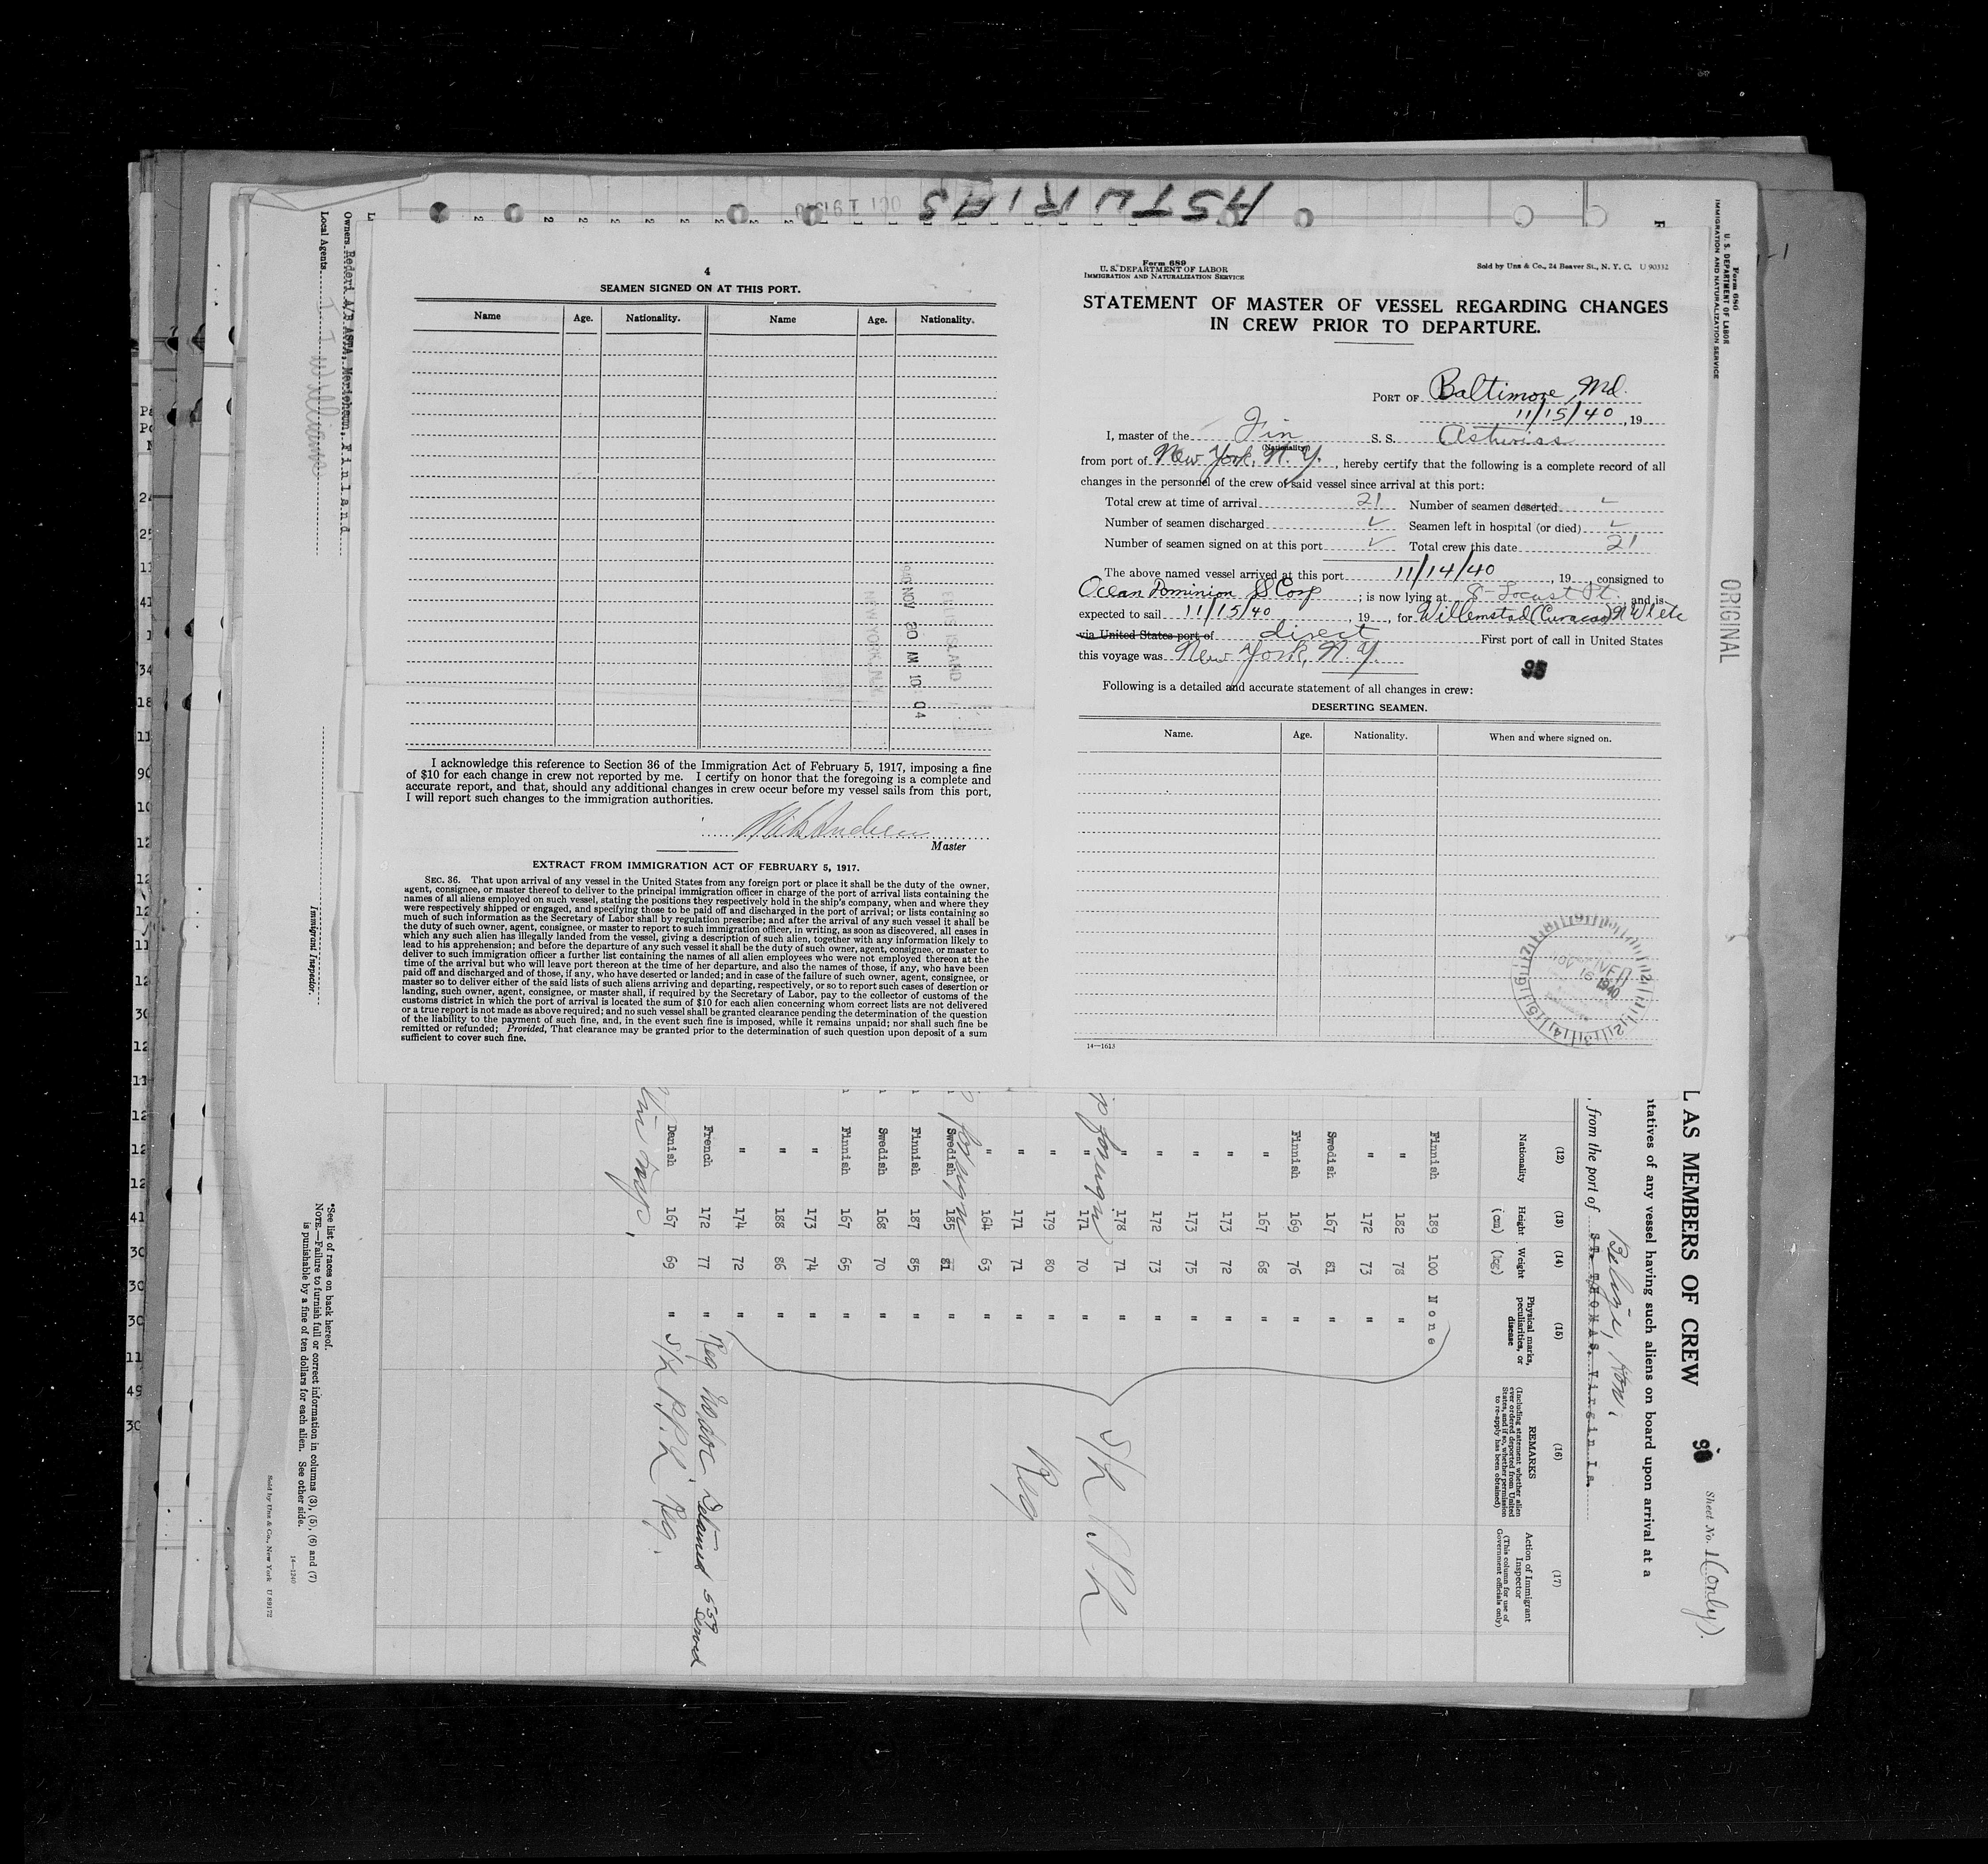 ASTURIAS
4
SEAMEN SIGNED ON AT THIS PORT.
Name Age. Nationality. Name Age. Nationality.
ELLIS ISLAND
NOV 20 AM 10 04
NEW YORK, N.Y.
I acknowledge this reference to Section 36 of the Immigration Act of February 5, 1917, imposing a fine
of $10 for each change in crew not reported by me. I certify on honor that the foregoing is a complete and
accurate report, and that, should any additional changes in crew occur before my vessel sails from this port,
I will report such changes to the immigration authorities.
Master
EXTRACT FROM IMMIGRATION ACT OF FEBRUARY 5, 1917.
SEC. 36. That upon arrival of any vessel in the United States from any foreign port or place it shall be the duty of the owner,
agent, consignee, or master thereof to deliver to the principal immigration officer in charge of the port of arrival lists containing the
names of all aliens employed on such vessel, stating the positions they respectively hold in the ship's company, when and where they
were respectively shipped or engaged, and specifying those to be paid off and discharged in the port of arrival; or lists containing so
much of such information as the Secretary of Labor shall by regulation prescribe; and after the arrival of any such vessel it shall be
the duty of such owner, agent, consignee, or master to report to such immigration officer, in writing, as soon as discovered, all cases in
which any such alien has illegally landed from the vessel, giving a description of such alien, together with any information likely to
lead to his apprehension; and before the departure of any such vessel it shall be the duty of such owner, agent, consignee, or master to
deliver to such immigration officer a further list containing the names of all alien employees who were not employed thereon at the
time of the arrival but who will leave port thereon at the time of her departure, and also the names of those, if any, who have been
paid off and discharged and of those, if any, who have deserted or landed; and in case of the failure of such owner, agent, consignee, or
master so to deliver either of the said lists of such aliens arriving and departing, respectively, or so to report such cases of desertion or
landing, such owner, agent, consignee, or master shall, if required by the Secretary of Labor, pay to the collector of customs of the
customs district in which the port of arrival is located the sum of $10 for each alien concerning whom correct lists are not delivered
or a true report is not made as above required; and no such vessel shall be granted clearance pending the determination of the question
of the liability to the payment of such fine, and, in the event such fine is imposed, while it remains unpaid; nor shall such fine be
remitted or refunded; Provided, That clearance may be granted prior to the determination of such question upon deposit of a sum
sufficient to cover such fine.
Form 689
U. S. DEPARTMENT OF LABOR
IMMIGRATION AND NATURALIZATION SERVICE
Sold by Unz & Co., 24 Beaver St., N. Y. C. U 90332
STATEMENT OF MASTER OF VESSEL REGARDING CHANGES
IN CREW PRIOR TO DEPARTURE.
PORT OF Baltimore, Md.
11/15/40, 19
I, master of the Fin S. S. Asturias
(Nationality)
from port of New York, N. Y., hereby certify that the following is a complete record of all
changes in the personnel of the crew of said vessel since arrival at this port:
Total crew at time of arrival 21 Number of seamen deserted
Number of seamen discharged Seamen left in hospital (or died)
Number of seamen signed on at this port Total crew this date 21
The above named vessel arrived at this port 11/14/40, 19 , consigned to
Ocean Dominion SS Corp ; is now lying at 8-Locust Pt. and is
expected to sail 11/15/40, 19 , for Willemstad (Curacao)
via United States port of direct First port of call in United States
this voyage was New York, N.Y.
95
Following is a detailed and accurate statement of all changes in crew:
DESERTING SEAMEN.
Name. Age. Nationality. When and where signed on.
NOV 16 1940
14—1613
Form 686
U. S. DEPARTMENT OF LABOR
IMMIGRATION AND NATURALIZATION SERVICE
ORIGINAL
L AS MEMBERS OF CREW
Sheet No. 1 (only).
ntatives of any vessel having such aliens on board upon arrival at a
, from the port of ST. THOMAS, Virgin Is.
Belize, Hon.
(12) (13) (14) (15) (16) (17)
Nationality
Height (cm)
Weight (kg)
Physical marks, peculiarities, or disease
REMARKS
(Including statement whether alien ever ordered deported from United States, and if so, whether permission to re-apply has been obtained)
Action of Immigrant Inspector
(This column for use of Government officials only)
Finnish 189 100 None
" 182 78 "
" 172 73 "
Swedish 167 81 "
Finnish 169 76 "
" 167 68 "
" 173 72 "
" 173 75 "
" 172 73 "
" 178 71 "
" 171 70 "
" 179 80 "
" 171 71 "
" 164 63 "
Swedish 185 81 "
Finnish 187 85 "
Swedish 168 70 "
Finnish 167 65 "
" 173 74 "
" 188 86 "
" 174 72 "
French 172 77 "
Denish 167 69 "
Reg
Detained 539 served
Reg.
Owners Rederi A/B ASTA, Mariehamn, Finland
Local Agents
Immigrant Inspector.
*See list of races on back hereof.
NOTE.—Failure to furnish full or correct information in columns (3), (5), (6) and (7)
is punishable by a fine of ten dollars for each alien. See other side.
14—1240
Sold by Unz & Co., New York U 89172